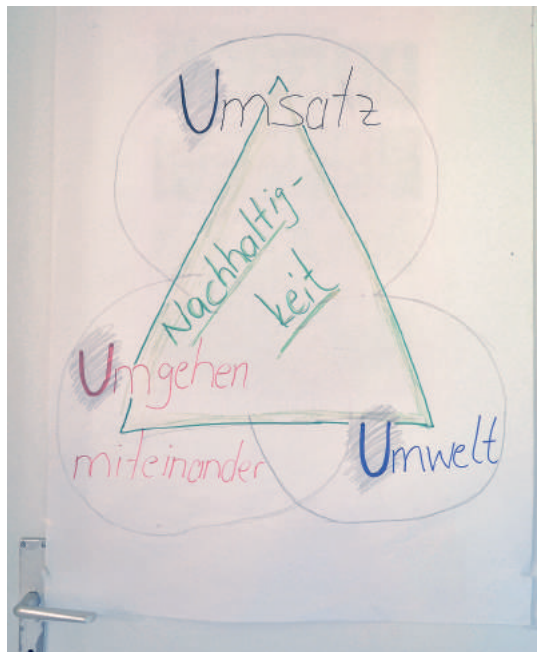 Umsatz
Nachhaltig-
keit
Umgehen
miteinander
Umwelt